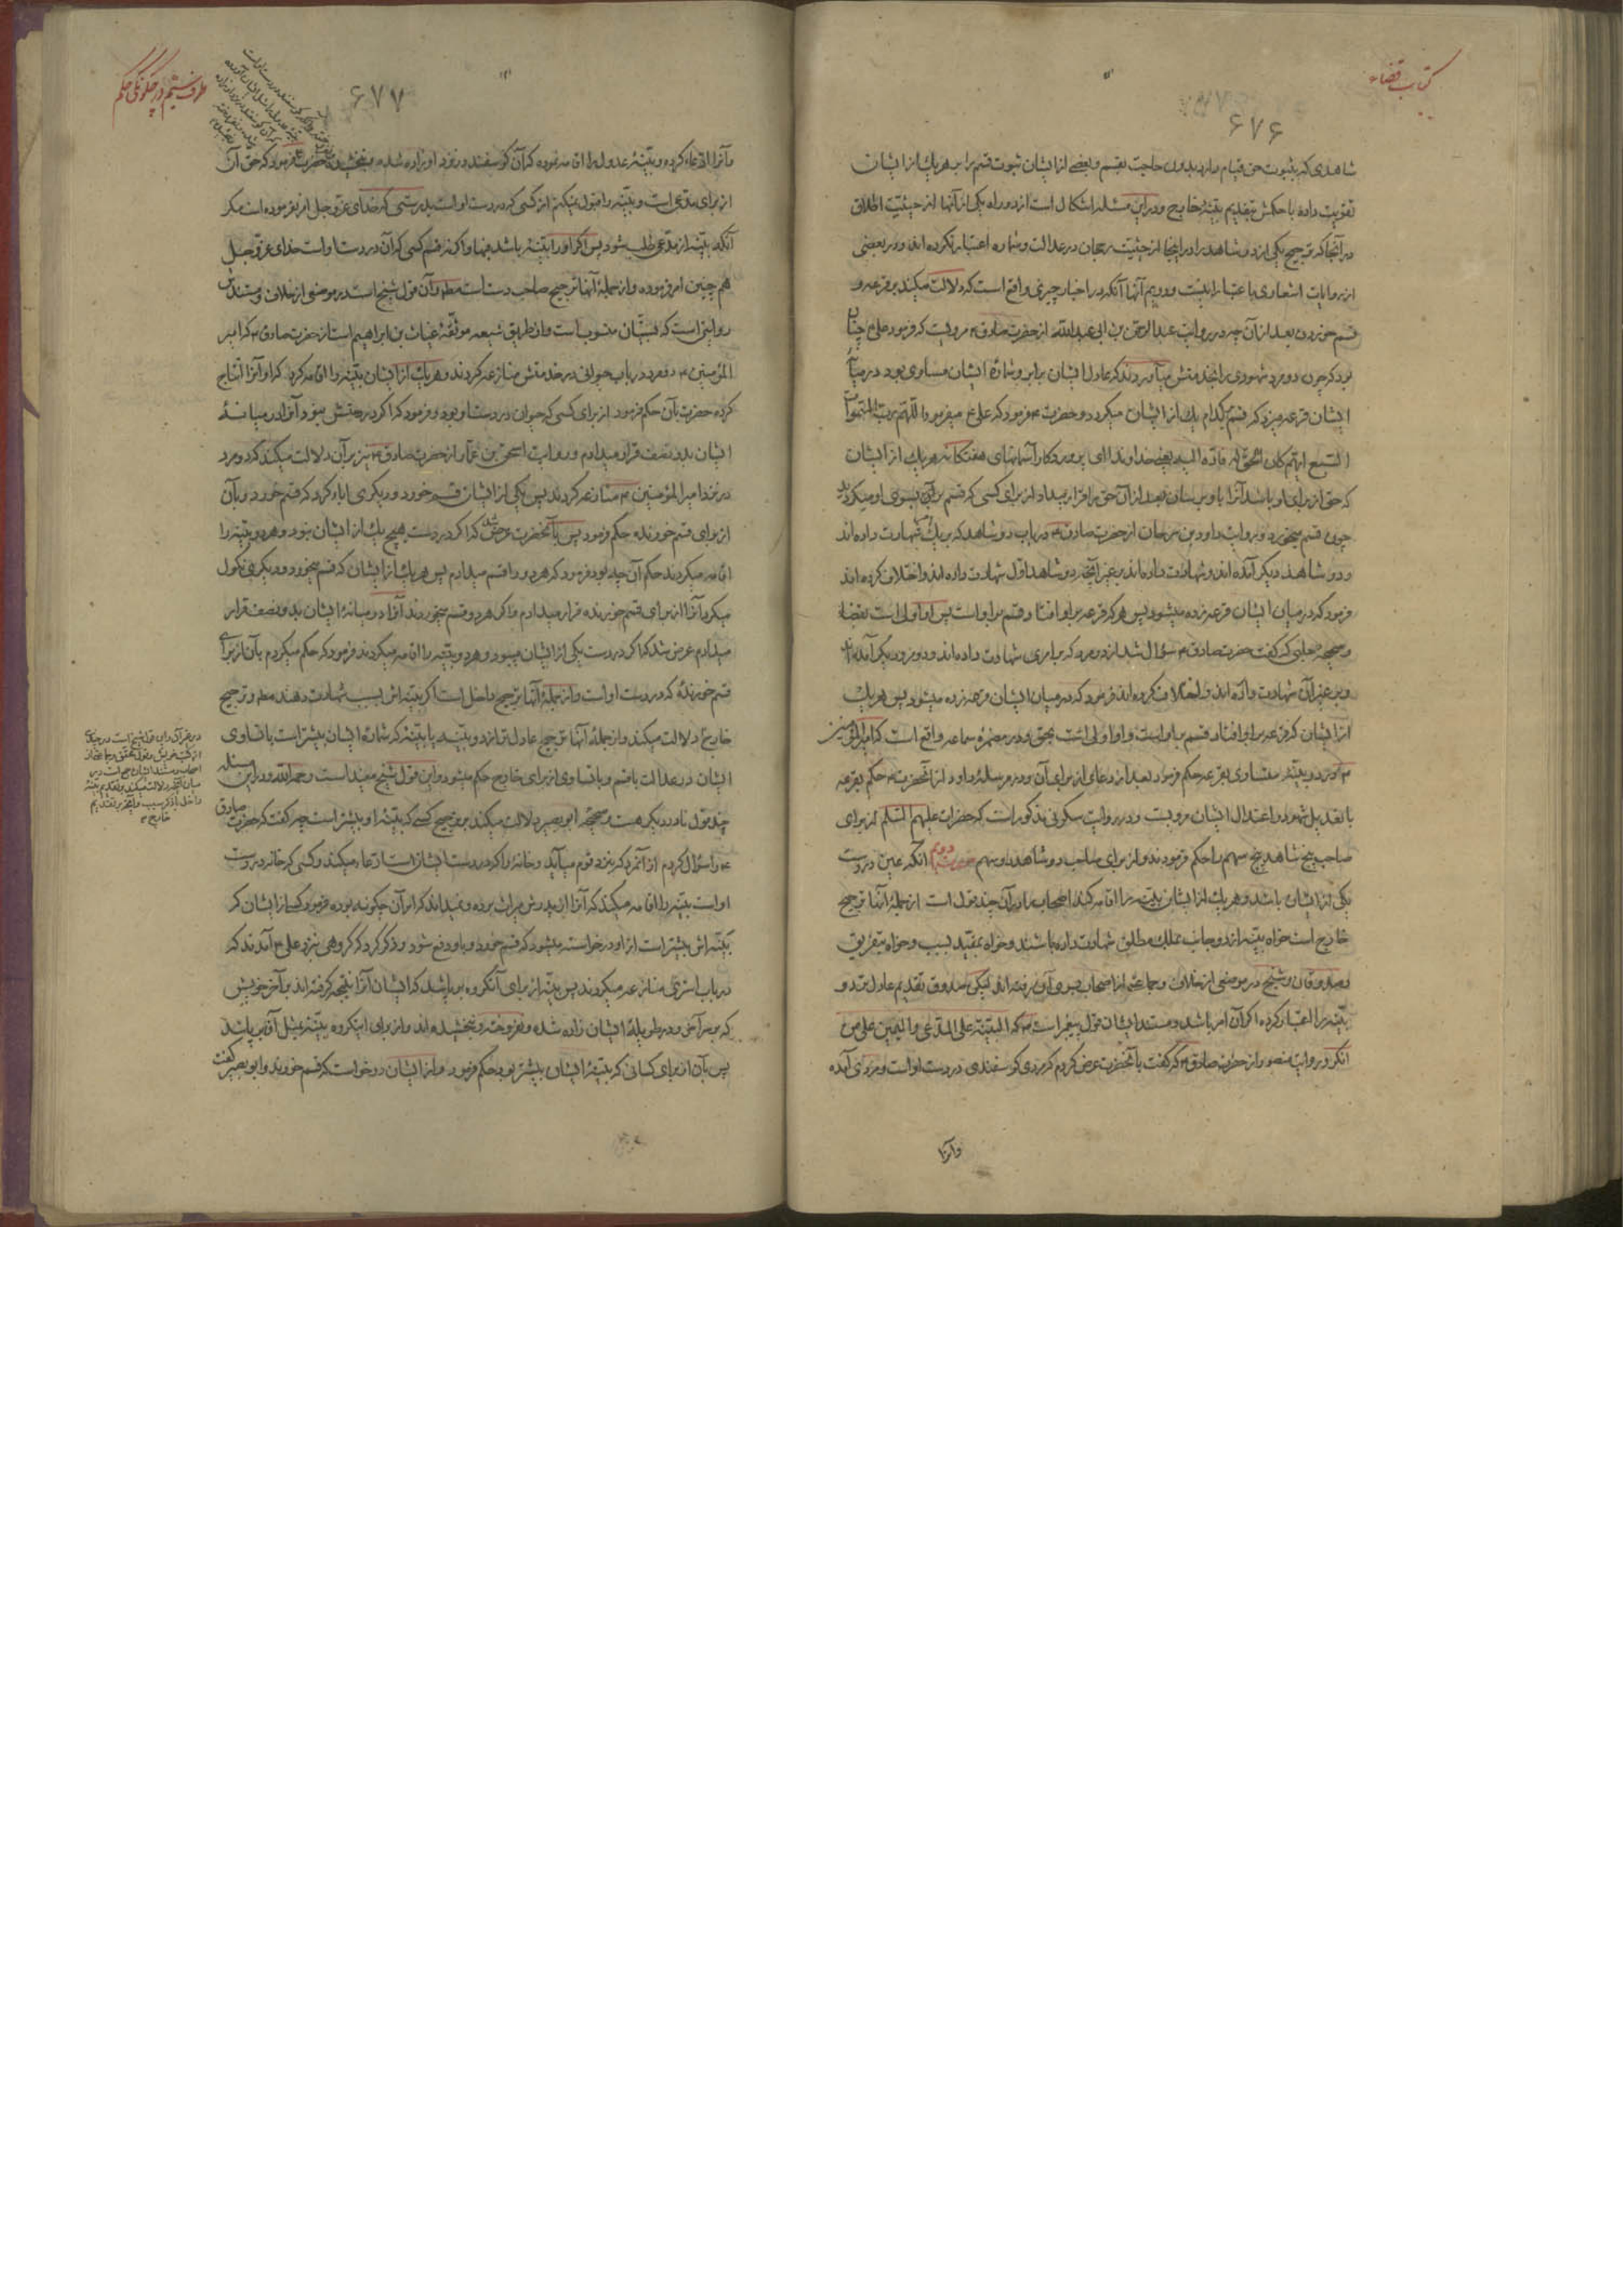 کتاب قضاء
۶۷۶
شاهدی که بثبوت حق قیام دارد بدون حاجت بقسم و بعضے از ایشان ثبوت قسم برابر هر یك از ایشان
تقویت داده با حکمش بتقدیم بیّنهٔ خارج و در این مسئله اشکال است از دو راه یکی از آنها از حیثیت اطلاق
در آنجا که ترجیح یکی از دو شاهد را در اینجا از حیثیت رجحان در عدالت و شماره اعتبار نکرده اند و در بعضی
از روایات اشعاری باعتبار آنست و دویم آنها آنکه در اخبار چیزی واقع است که دلالت میکند بر قرعه و
قسم خوردن بعد از آن چه در روایت عبد الرحمن بن ابی عبد الله از حضرت صادق ع مرویست که فرمود علی ع چنان
بود که چون دو مرد شهودی را بخدمتش میآوردند که عادل ایشان برابر و شمارهٔ ایشان مساوی بود در میان
ایشان قرعه میزد که قسم بکدام یك از ایشان میگردد و حضرت ع فرمود که علی ع میفرمود اللهم رب السموات
السبع ایهم کان الحق له فادّه الیه یعنی خداوندا ای پروردگار آسمانهای هفتگانه هر یك از ایشان
که حق از برای او باشد آنرا باو برسان بعد از آن حق را قرار میداد از برای کسی که قسم بر آن بسوی او میگردید
چون قسم میخورد و روایت داود بن سرحان از حضرت صادق ع در باب دو شاهد که بر یك شهادت داده اند
و دو شاهد دیگر آمده اند و شهادت داده اند بر غیر آنچه دو شاهد اوّل شهادت داده اند و اختلاف کرده اند
فرمود که در میان ایشان قرعه زده میشود پس هر که قرعه بر او افتاد و قسم بر او است پس او اولی است بقضا
و صحیحهٔ حلبی که گفت حضرت صادق ع سؤال شد از دو مرد که بر امری شهادت داده اند و دو مرد دیگر آمده اند
و بر غیر آن شهادت داده اند و اختلاف کرده اند فرمود که در میان ایشان قرعه زده میشود پس هر یك
از ایشان که قرعه بر او افتاد قسم بر او است و او اولی است بحق و در مضمرهٔ سماعه واقع است که امیر المؤمنین
ع در دو بیّنهٔ متساوی بقرعه حکم فرمود بعد از دعای از برای آن و در مرسلهٔ داود از آنحضرت ع حکم بقرعه
با تعدیل شهود و اعتدال ایشان مرویست و در روایت سکونی مذکور است که حضرت علیهم السّلم از برای
صاحب پنج شاهد پنج سهم را حکم فرمودند و از برای صاحب دو شاهد دو سهم صورت دوم آنکه عین در دست
یکی از ایشان باشد و هر یك از ایشان بیّنه را اقامه کند اصحاب را در آن چند قول است از جملهٔ آنها ترجیح
خارج است خواه بیّنه از دو جانب بملك مطلق شهادت داده باشند و خواه بمقید بسبب و خواه بتفریق
و صدوقان و شیخ در موضعی از خلاف و جماعتی از اصحاب بسوی آن رفته اند لیکن صدوق تقدیم عادل تر دو
بیّنه را اعتبار کرده اگر آن امر باشد و مستند ایشان قول پیغمبر است ص که البیّنة علی المدّعی و الیمین علی من
انکر و روایت منصور از حضرت صادق ع که گفت بآنحضرت عرض کردم که مردی گوسفندی در دست او است و مردی آمده
و آنرا
طرف ششم در چگونگی حکم
۶۷۷
و آنرا ادّعاء کرده و بیّنهٔ عدول را اقامه نموده که آن گوسفند در نزد او زاده شده و نبخشیده حضرت فرمود که حق آن
از برای مدّعی است و بیّنه را قبول نمیکنم از کسی که در دست او است بدرستی که خدای عزّ و جل امر نفرموده است مگر
آنکه بیّنه از مدّعی طلب شود پس اگر او را بیّنهٔ باشد فبها و اگر نه قسم کسی که آن در دست او است خدای عزّ و جل
هم چنین امر فرموده و از جملهٔ آنها ترجیح صاحب دست است مطلقا و آن قول شیخ است در موضعی از خلاف و مستندش
روایتی است که بسنّیان منسوب است و از طریق شیعه موثّقهٔ غیاث بن ابراهیم است از حضرت صادق ع که امیر
المؤمنین ع دو مرد در باب حیوانی در خدمتش منازعه کردند و هر یك از ایشان بیّنه را اقامه کرد که او آنرا انتاج
کرده حضرت بآن حکم فرمود از برای کسی که حیوان در دست او بود و فرمود که اگر در دستش نبود آنرا در میانهٔ
ایشان بدو نصف قرار میدادم و روایت اسحق بن عمّار از حضرت صادق ع نیز بر آن دلالت میکند که دو مرد
در نزد امیر المؤمنین ع منازعه کردند پس یکی از ایشان قسم خورد و دیگری اباء کرد که قسم خورد و بآن
از برای قسم خورنده حکم فرمود پس بآنحضرت عرض شد که اگر در دست هیچ یك از ایشان نبود و هر دو بیّنه را
اقامه میکردند حکم آن چه بود فرمود که هر دو را قسم میدادم پس هر یك از ایشان که قسم میخورد و دیگری نکول
میکرد آنرا از برای قسم خورنده قرار میدادم و اگر هر دو قسم میخوردند آنرا در میانهٔ ایشان بدو نصف قرار
میدادم عرض شد که اگر در دست یکی از ایشان میبود و هر دو بیّنه را اقامه میکردند فرمود که حکم میکردم بآن از برای
قسم خورندهٔ که در دست او است و از جملهٔ آنها ترجیح داخل است اگر بیّنه اش بسبب شهادت دهند مطلقا و ترجیح
خارج دلالت میکند و از جملهٔ آنها ترجیح عادل تر از دو بیّنه یا بیّنهٔ که شمارهٔ ایشان بیشتر است با تساوی
ایشان در عدالت با قسم و با تساوی از برای خارج حکم میشود و این قول شیخ مفید است رحمه الله و در این مسئله
چند قول نادر دیگر هست و صحیحهٔ ابو بصیر دلالت میکند بر ترجیح کسے که بیّنهٔ او بیشتر است چه گفت که حضرت صادق
ع را سؤال کردم از آنمرد که بنزد قوم میآید و خانهٔ را که در دست ایشان است ادّعاء میکند و کسی که خانه در دست
او است بیّنه را اقامه میکند که آنرا از پدرش میراث برده و نمیداند که امر آن چگونه بوده فرمود کسے از ایشان که
بیّنه اش بیشتر است از او درخواسته میشود که قسم خورد و باو دفع شود و ذکر کرد که گروهی بنزد علی ع آمدند که
در باب استری منازعه میکردند پس بیّنه از برای آنگروه برپا شد که ایشان آنرا نتیجه گرفته اند بر آخر خویش
که بر سر آخر و در طویلهٔ ایشان زاده شده و نفروخته و نبخشیده اند و از برای اینگروه بیّنهٔ بمثل آن برپا شد
پس بآن از برای کسانی که بیّنهٔ ایشان بیشتر بود حکم فرمود و از ایشان درخواست که قسم خورند و ابو بصیر گفت